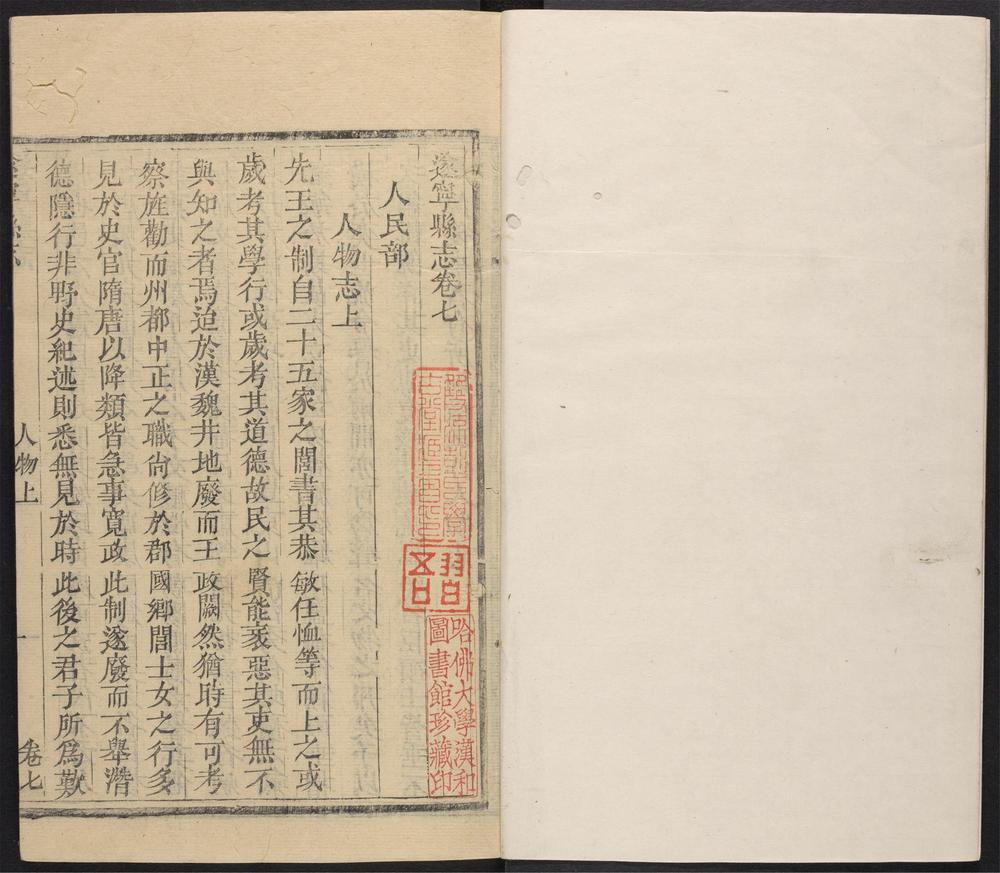 遂寧縣志卷七
人民部
人物志上
先王之制自二十五家之閭書其恭敏任恤等而上之或
歲考其學行或歲考其道德故民之賢能衺惡其吏無不
與知之者焉迨於漢魏井地廢而王政闕然猶時有可考
察旌勸而州都中正之職尙修於郡國鄉閭士女之行多
見於史官隋唐以降類皆急事寬政此制遂廢而不舉潛
德隱行非野史紀述則悉無見於時此後之君子所爲歎
人物上
一
卷七
哈佛大學漢和
圖書館珍藏印